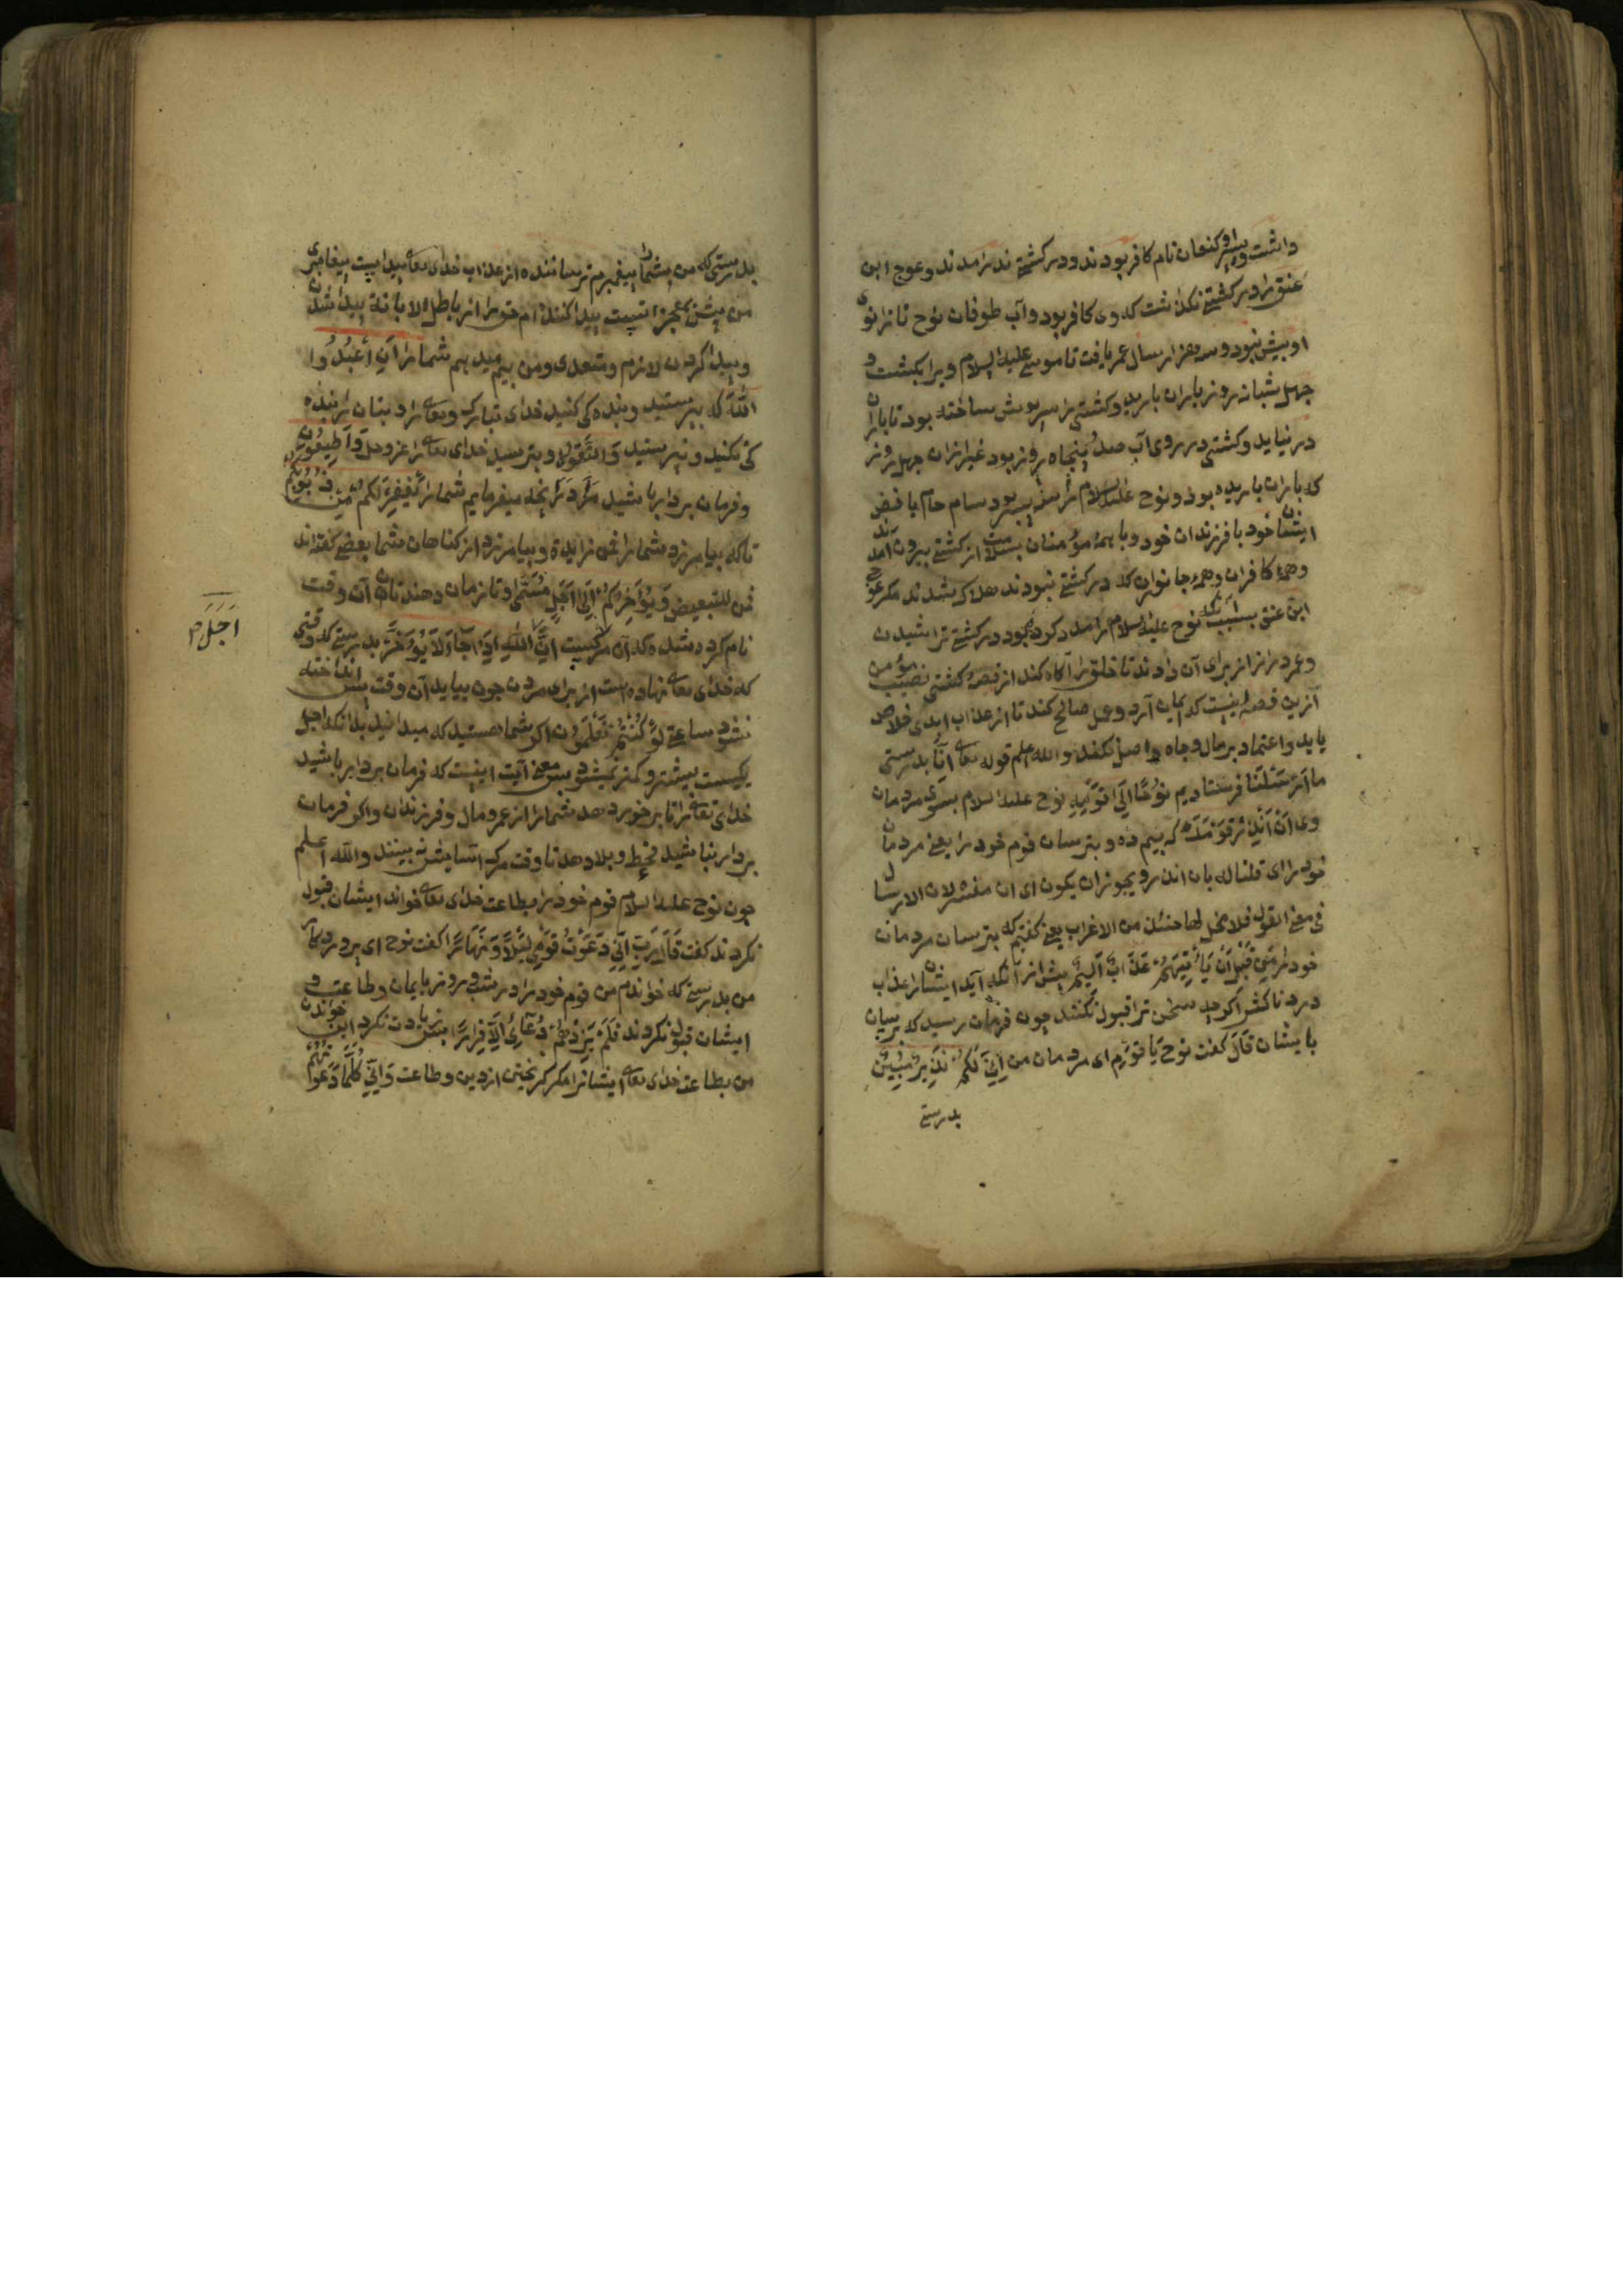 داشت و پسر او کنعان نام کافر بودند و در کشتی ندرامدند و عوج ابن
عنق را در کشتی نگذاشت که وی کافر بود و آب طوفان نوح تا زانوی
او بیش نبود و سه هزار سال عمر یافت تا موسی علیه السلام ویرا بکشت و
چهل شبانروز باران بارید و کشتی را سرپوش ساخته بود تا باران
در نیاید و کشتی در روی آب صد و پنجاه روز بود غیر ازان چهل روز
که باران باریده بود و نوح علیه السلام را سه پسر بود سام حام یافث
ایشان خود با فرزندان خود و با همهٔ مؤمنان بسلامت از کشتی بیرون آمدند
و همهٔ کافران و همهٔ جانوران که در کشتی نبودند هلاک شدند مکر عوج
ابن عنق بسبب آنکه نوح علیه السلام را مدد کرده بود در کشتی تراشیدن
و عمر دراز از برای آن دادند تا خلق را آکاه کند از قصهٔ کشتی نصیب مؤمن
ازین قصه اینست که ایمان آرد و عمل صالح کند تا از عذاب ابدی خلاص
یابد و اعتماد بر مال و جاه و اصل نکند والله اعلم قوله تعالی اِنَّا بدرستی
ما اَرْسَلْنَا فرستادیم نُوْحًا اِلٰی قَوْمِهٖ نوح علیه السلام بسوی مردمان
وی اَنْ اَنْذِرْ قَوْمَکَ که بیم ده و بترسان قوم خود را یعنی مردمان
خود را ای قلنا له بان انذر و یجوز ان یکون ای ان مفسرة لان الارسال
فی معنی القول فلا محل لها حینئذ من الاعراب یعنی کفتیم که بترسان مردمان
خود را مِنْ قَبْلِ اَنْ یَاْتِیَهُمْ عَذَابٌ اَلِیْمٌ پیش از آنکه آید ایشانرا عذاب
دردناک اکر چه سخن ترا قبول نکنند چون فرمان رسید که برسان
بایشان قَالَ کفت نوح یَا قَوْمِ ای مردمان من اِنِّیْ لَکُمْ نَذِیْرٌ مُبِیْنٌ
بدرستی
بدرستی که من بشما پیغمبرم ترساننده از عذاب خدای تعالی پیداست پیغامبری
من پیش معجزه است پیدا کننده ام حق را از باطل الابانة پیدا شدن
و پیدا کردن لازم و متعدی و من بیم میدهم شما را اَنِ اعْبُدُوا
اللّٰهَ که بپرستید و بنده کی کنید خدای تبارک و تعالی را و بتان را بنده
کی نکنید و نپرستید وَاتَّقُوْهُ و بترسید خدای تعالی را عز و جل وَاَطِیْعُوْنِ
و فرمان بردار باشید مرا در آنچه میفرمایم شما را یَغْفِرْ لَکُمْ مِنْ ذُنُوْبِکُمْ
تا که بیامرزد شما را من زایدة و بیامرزد از کناهان شما بعضی کفته اند
من للتبعیض وَ یُؤَخِّرْکُمْ اِلٰی اَجَلٍ مُسَمًّی و تا زمان دهند تا آن وقت
نام کرده شده که آن مرکست اِنَّ اَجَلَ اللّٰهِ اِذَا جَآءَ لَا یُؤَخَّرُ بدرستی که وقتی
که خدای تعالی نهاده است از برای مردن چون بیاید آن وقت پس انداخته
نشود ساعتی لَوْ کُنْتُمْ تَعْلَمُوْنَ اکر شما هستید که میدانید بدانکه اجل
یکیست بیشتر و کمتر نمیشود پس معنی آیت اینست که فرمان بردار باشید
خدای تعالی را تا برخورد دهد شما را از عمر و مال و فرزندان و اکر فرمان
بردار نباشید قحط و بلا دهد تا وقت مرک آسایش نه بینند والله اعلم
چون نوح علیه السلام قوم خود را بطاعت خدای تعالی خواند ایشان قبول
نکردند کفت قَالَ رَبِّ اِنِّیْ دَعَوْتُ قَوْمِیْ لَیْلًا وَ نَهَارًا کفت نوح ای پروردکار
من بدرستی که خواندم من قوم خود را در شب و روز بایمان و طاعت و
ایشان قبول نکردند فَلَمْ یَزِدْهُمْ دُعَآئِیْ اِلَّا فِرَارًا پس زیادت نکرد این خواندن
من بطاعت خدای تعالی ایشانرا مکر کریختن از دین و طاعت وَ اِنِّیْ کُلَّمَا دَعَوْتُهُمْ
اَجَلَ صح